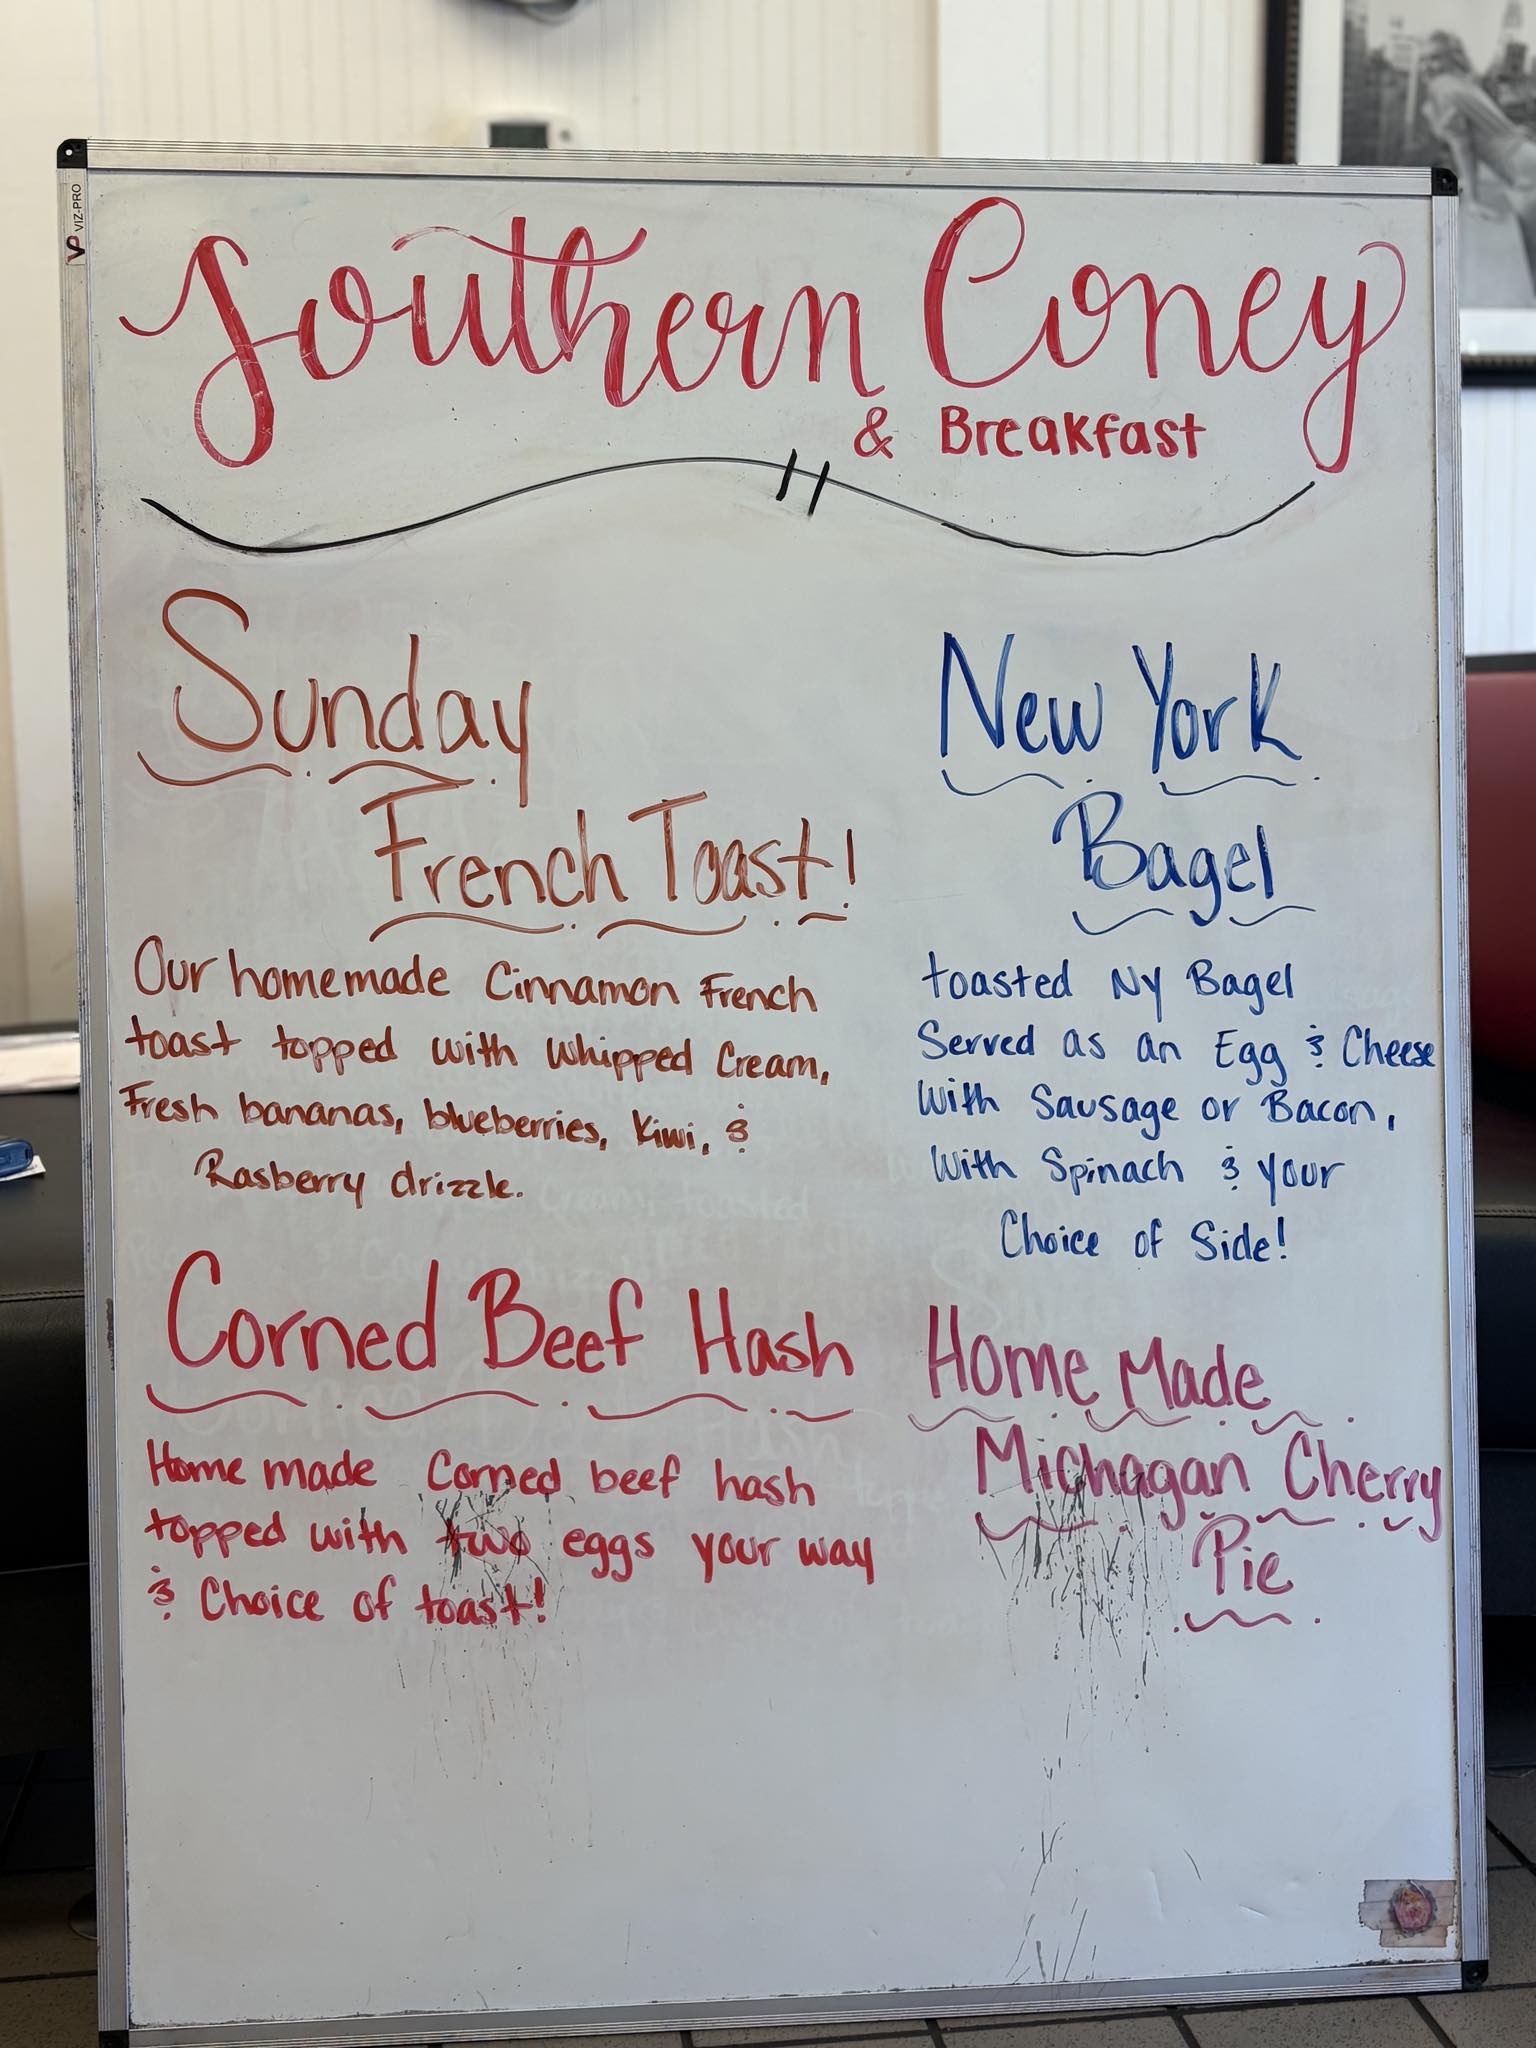 VP VIZ-PRO
Southern Coney
& Breakfast
Sunday
French Toast!
Our homemade Cinnamon French
toast topped with Whipped Cream,
Fresh bananas, blueberries, Kiwi, &
Rasberry drizzle.
New York
Bagel
toasted NY Bagel
Served as an Egg & Cheese
With Sausage or Bacon,
With Spinach & your
Choice of Side!
Corned Beef Hash
Home made Corned beef hash
topped with two eggs your way
& Choice of toast!
Home Made
Michagan Cherry
Pie